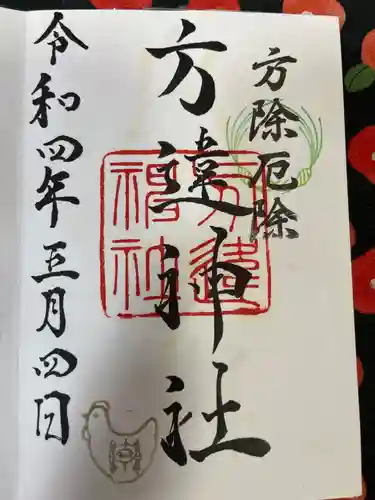 方除厄除
方違神社
令和四年五月四日
方違
神社